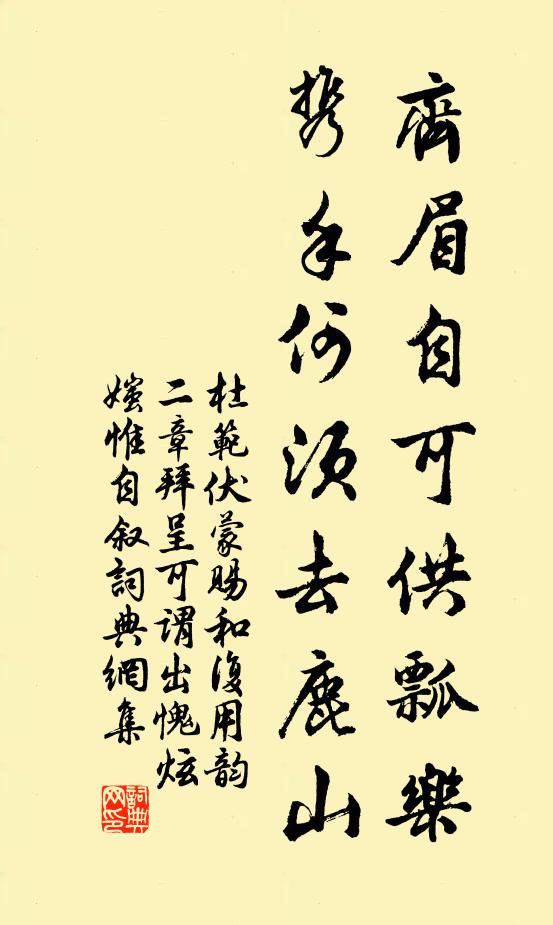 齊眉自可供瓢樂
携手何須去鹿山
杜範伏蒙賜和復用韵
二章拜呈可謂出愧炫
媸惟自叙詞典網集
詞典
网印